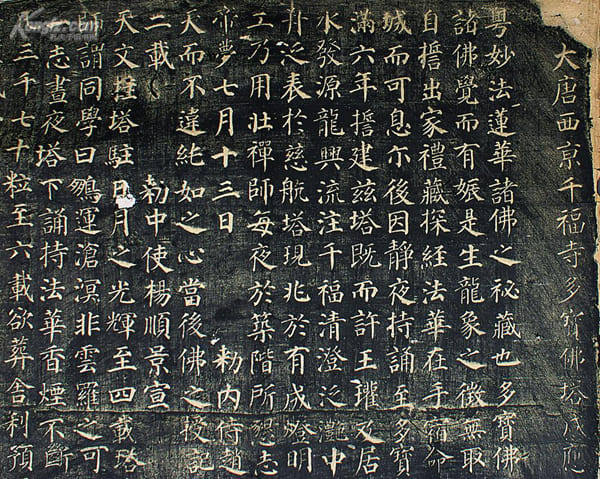 大唐西京千福寺多寶佛塔感應
粵妙法蓮華諸佛之秘藏也多寶佛
諸佛覺而有娠是生龍象之徵無取
自誓出家禮藏探經法華在手宿命
城而可息尒後因靜夜持誦至多寶
滿六年誓建茲塔既而許王瓘及居
水發源龍興流注千福清澄泛灔中
舟泛表於慈航塔現兆於有成燈明
工乃用壯禪師每夜於築階所懇志
帝夢七月十三日　勑內侍趙
天而不違純如之心當後佛之授記
二載　勑中使楊順景宣
天文挂塔駐日月之光輝至四載塔
師謂同學曰鵬運滄溟非雲羅之可
一志晝夜塔下誦持法華香煙不斷
三千七十粒至六載欲葬舍利預